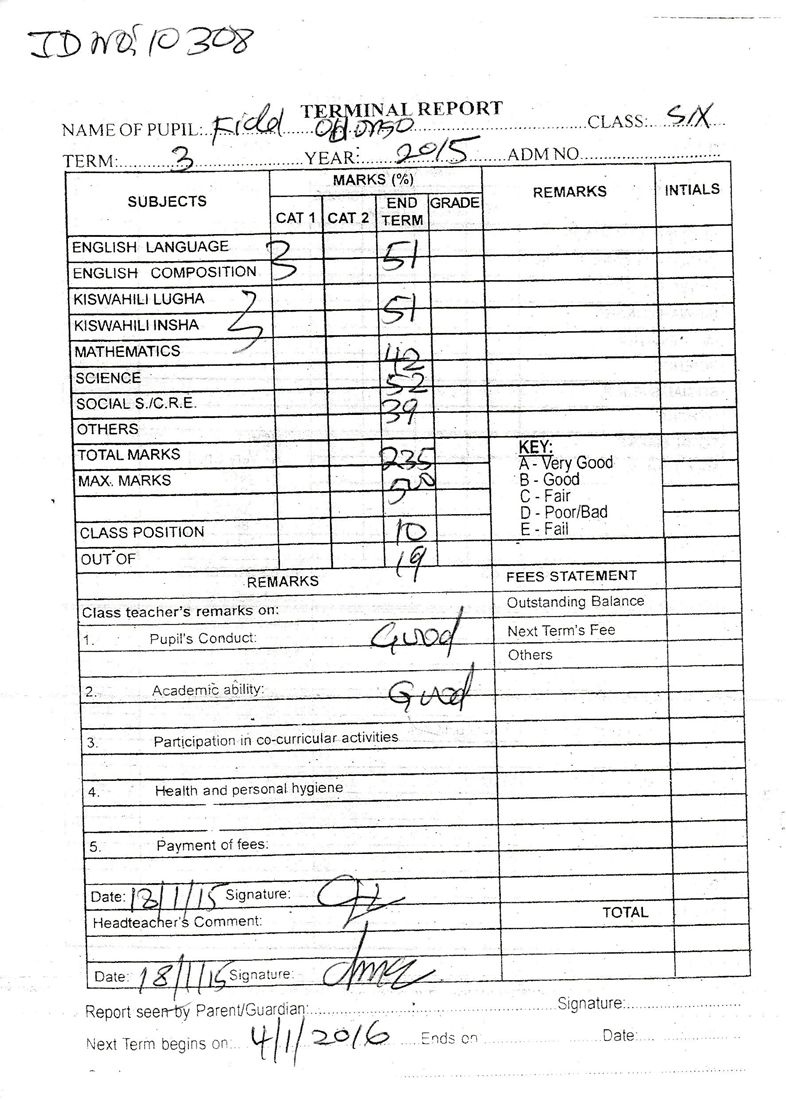 ID NO; 10308
TERMINAL REPORT
NAME OF PUPIL: Fidel CLASS: SIX
TERM: 3 YEAR: 2015 ADM NO
SUBJECTS MARKS (%) REMARKS INTIALS
CAT 1 CAT 2 END TERM GRADE
ENGLISH LANGUAGE
ENGLISH COMPOSITION 51
KISWAHILI LUGHA
KISWAHILI INSHA 51
MATHEMATICS 42
SCIENCE 52
SOCIAL S./C.R.E. 39
OTHERS
TOTAL MARKS 235
MAX. MARKS 500
CLASS POSITION 10
OUT OF 19
KEY:
A - Very Good
B - Good
C - Fair
D - Poor/Bad
E - Fail
REMARKS FEES STATEMENT
Class teacher's remarks on: Outstanding Balance
1. Pupil's Conduct: Good Next Term's Fee
Others
2. Academic ability: Good
3. Participation in co-curricular activities
4. Health and personal hygiene
5. Payment of fees:
Date: 18/1/15 Signature:
Headteacher's Comment: TOTAL
Date: 18/1/15 Signature:
Report seen by Parent/Guardian: Signature:
Next Term begins on: 4/1/2016 Ends on Date: